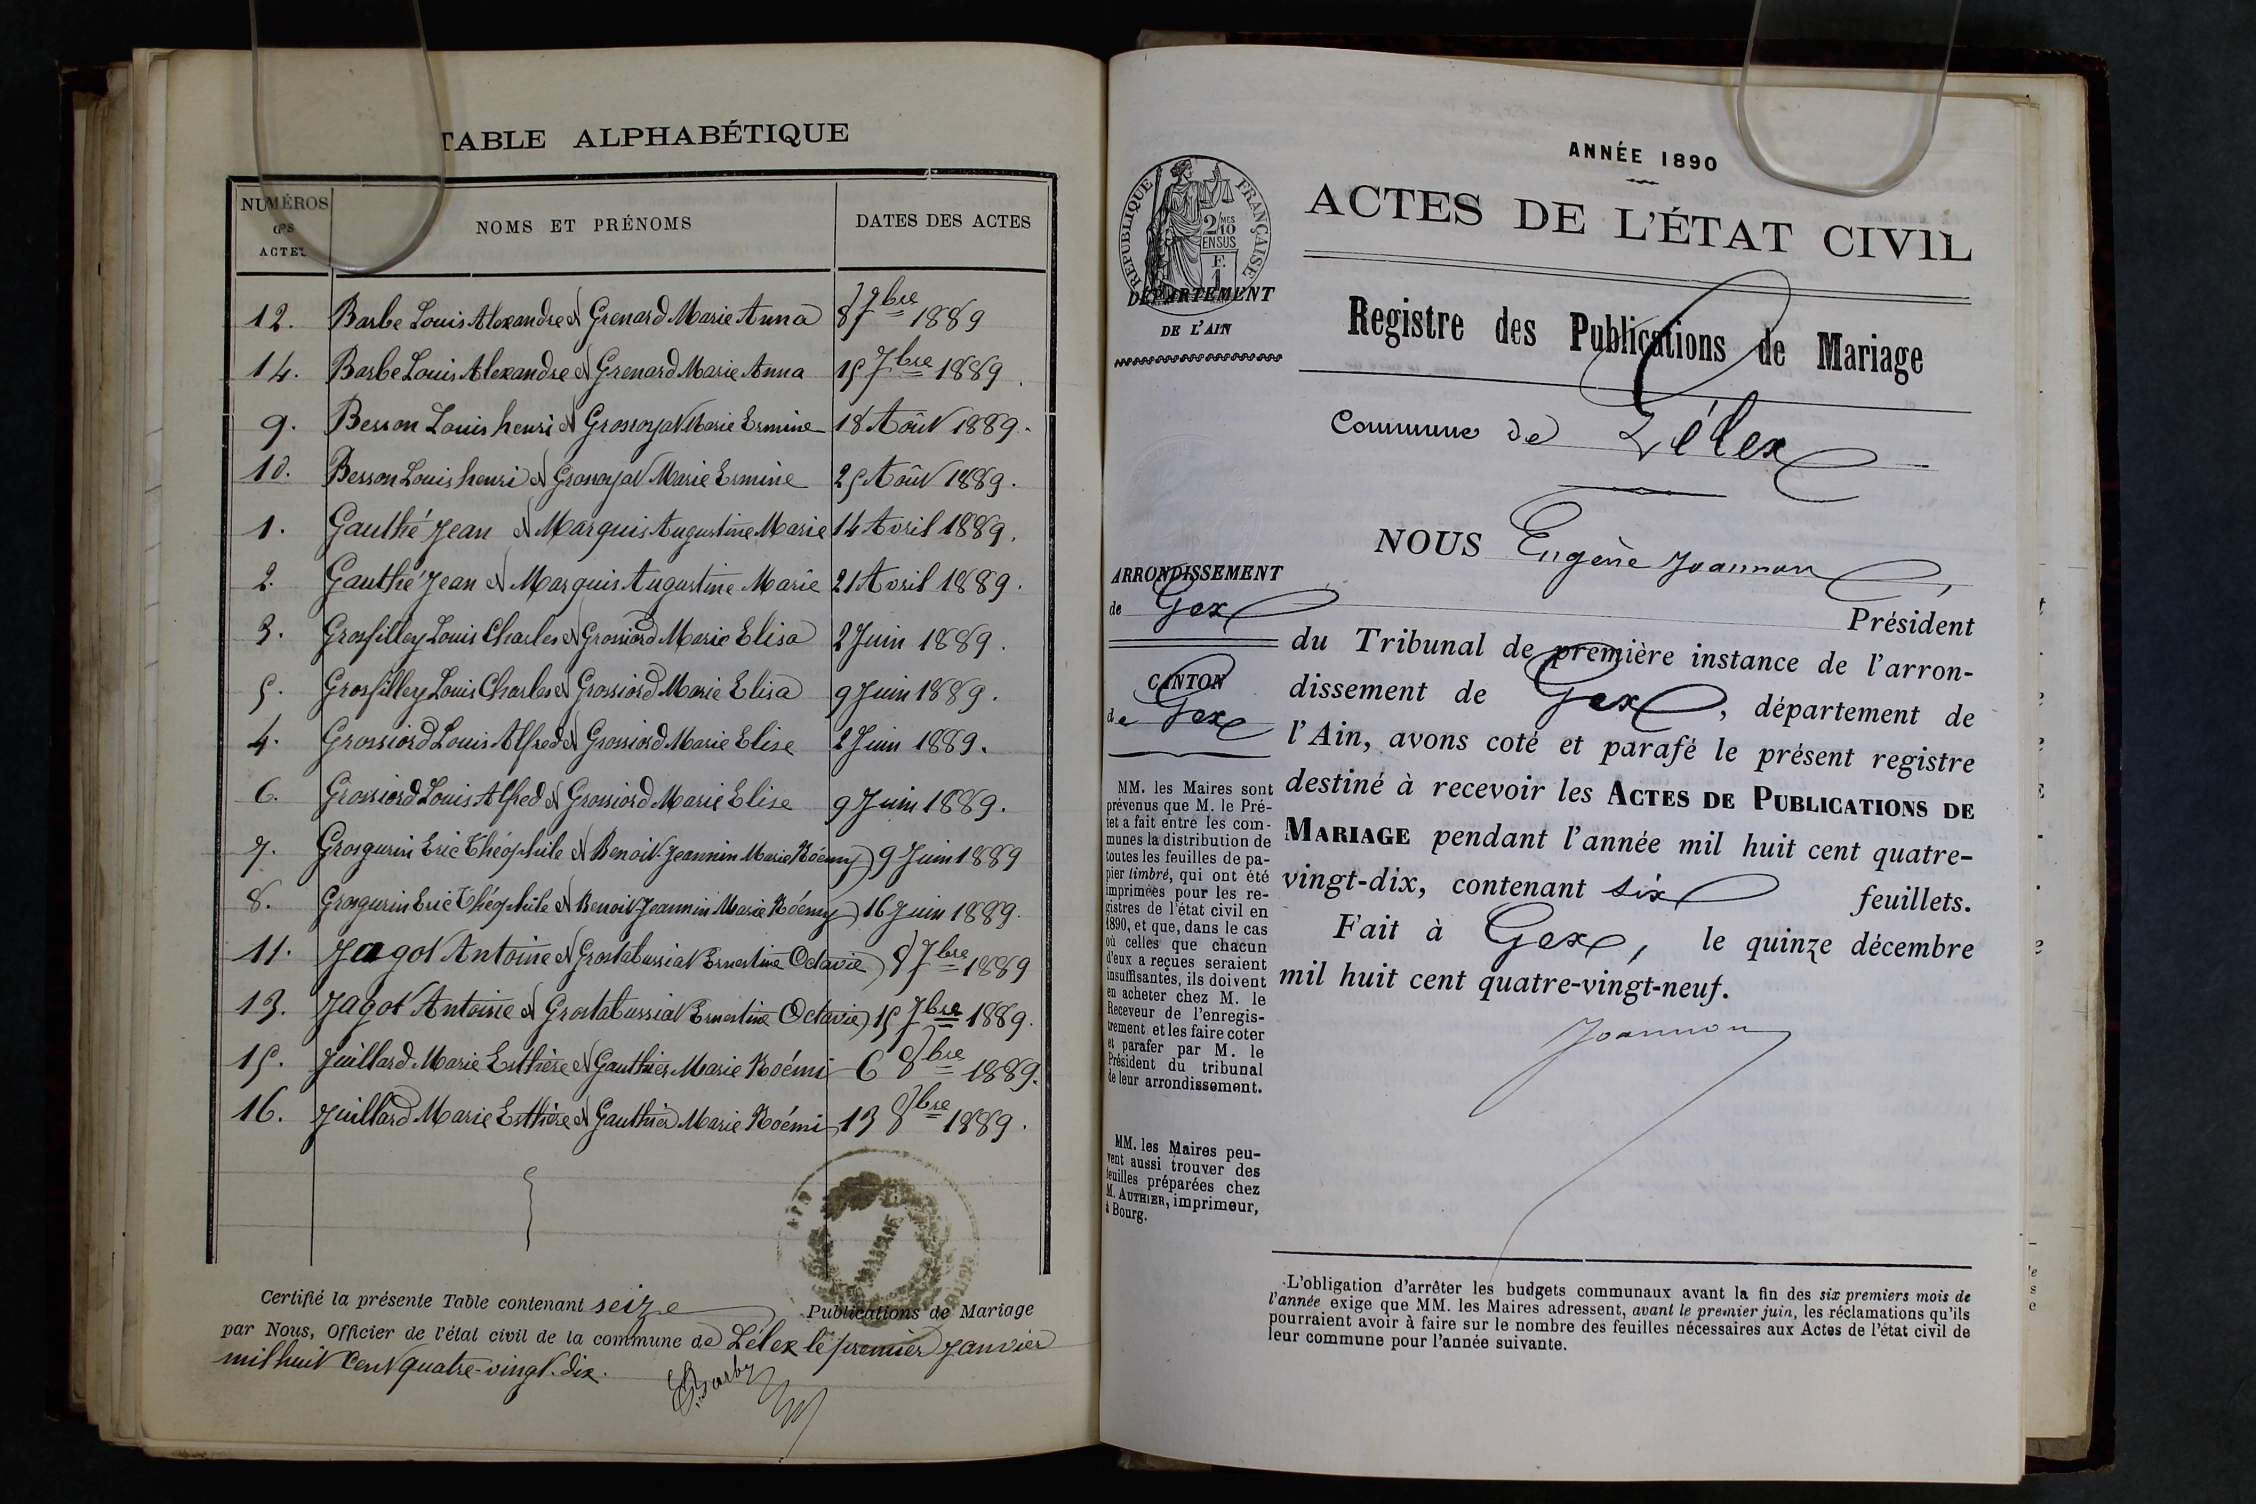 TABLE ALPHABÉTIQUE
NUMÉROS des ACTES
NOMS ET PRÉNOMS
DATES DES ACTES
12. Barbe Louis Alexandre et Grenard Marie Anna 8 7bre 1889
14. Barbe Louis Alexandre et Grenard Marie Anna 15 7bre 1889.
9. Besson Louis henri et Grosroyat Marie Ermine 18 Août 1889.
10. Besson Louis henri et Grosroyat Marie Ermine 25 Août 1889.
1. Gauthé Jean et Marquis Augustine Marie 14 Avril 1889.
2. Gauthé Jean et Marquis Augustine Marie 21 Avril 1889.
3. Grosfilley Louis Charles et Grossiord Marie Elisa 2 Juin 1889.
5. Grosfilley Louis Charles et Grossiord Marie Elisa 9 Juin 1889.
4. Grossiord Louis Alfred et Grossiord Marie Elise 2 Juin 1889.
6. Grossiord Louis Alfred et Grossiord Marie Elise 9 Juin 1889.
7. Grosgurin Eric Théophile et Benoit Jeannin Marie Noémy 9 Juin 1889
8. Grosgurin Eric Théophile et Benoit Jeannin Marie Noémy 16 Juin 1889.
11. Jagot Antoine et Grostabussiat Ernestine Octavie 8 7bre 1889
13. Jagot Antoine et Grostabussiat Ernestine Octavie 15 7bre 1889.
15. Juillard Marie Esthère et Gauthier Marie Noémi 6 8bre 1889.
16. Juillard Marie Esthère et Gauthier Marie Noémi 13 8bre 1889.
MAIRIE
AIN
Certifié la présente Table contenant seize Publications de Mariage
par Nous, Officier de l'état civil de la commune de Lélex le premier Janvier
mil huit cent quatre-vingt-dix.
Barby
ANNÉE 1890
RÉPUBLIQUE FRANÇAISE
2/10 MES
EN SUS
F.
1
DÉPARTEMENT
DE L'AIN
ACTES DE L'ÉTAT CIVIL
Registre des Publications de Mariage
Commune de Lélex
ARRONDISSEMENT
de Gex
CANTON
de Gex
MM. les Maires sont
prévenus que M. le Pré-
fet a fait entre les com-
munes la distribution de
toutes les feuilles de pa-
pier timbré, qui ont été
imprimées pour les re-
gistres de l'état civil en
1890, et que, dans le cas
où celles que chacun
d'eux a reçues seraient
insuffisantes, ils doivent
en acheter chez M. le
Receveur de l'enregis-
trement et les faire coter
et parafer par M. le
Président du tribunal
de leur arrondissement.
MM. les Maires peu-
vent aussi trouver des
feuilles préparées chez
M. AUTHIER, imprimeur,
à Bourg.
NOUS Eugène Joannon
Président
du Tribunal de première instance de l'arron-
dissement de Gex, département de
l'Ain, avons coté et parafé le présent registre
destiné à recevoir les ACTES DE PUBLICATIONS DE
MARIAGE pendant l'année mil huit cent quatre-
vingt-dix, contenant six feuillets.
Fait à Gex, le quinze décembre
mil huit cent quatre-vingt-neuf.
Joannon
L'obligation d'arrêter les budgets communaux avant la fin des six premiers mois de
l'année exige que MM. les Maires adressent, avant le premier juin, les réclamations qu'ils
pourraient avoir à faire sur le nombre des feuilles nécessaires aux Actes de l'état civil de
leur commune pour l'année suivante.